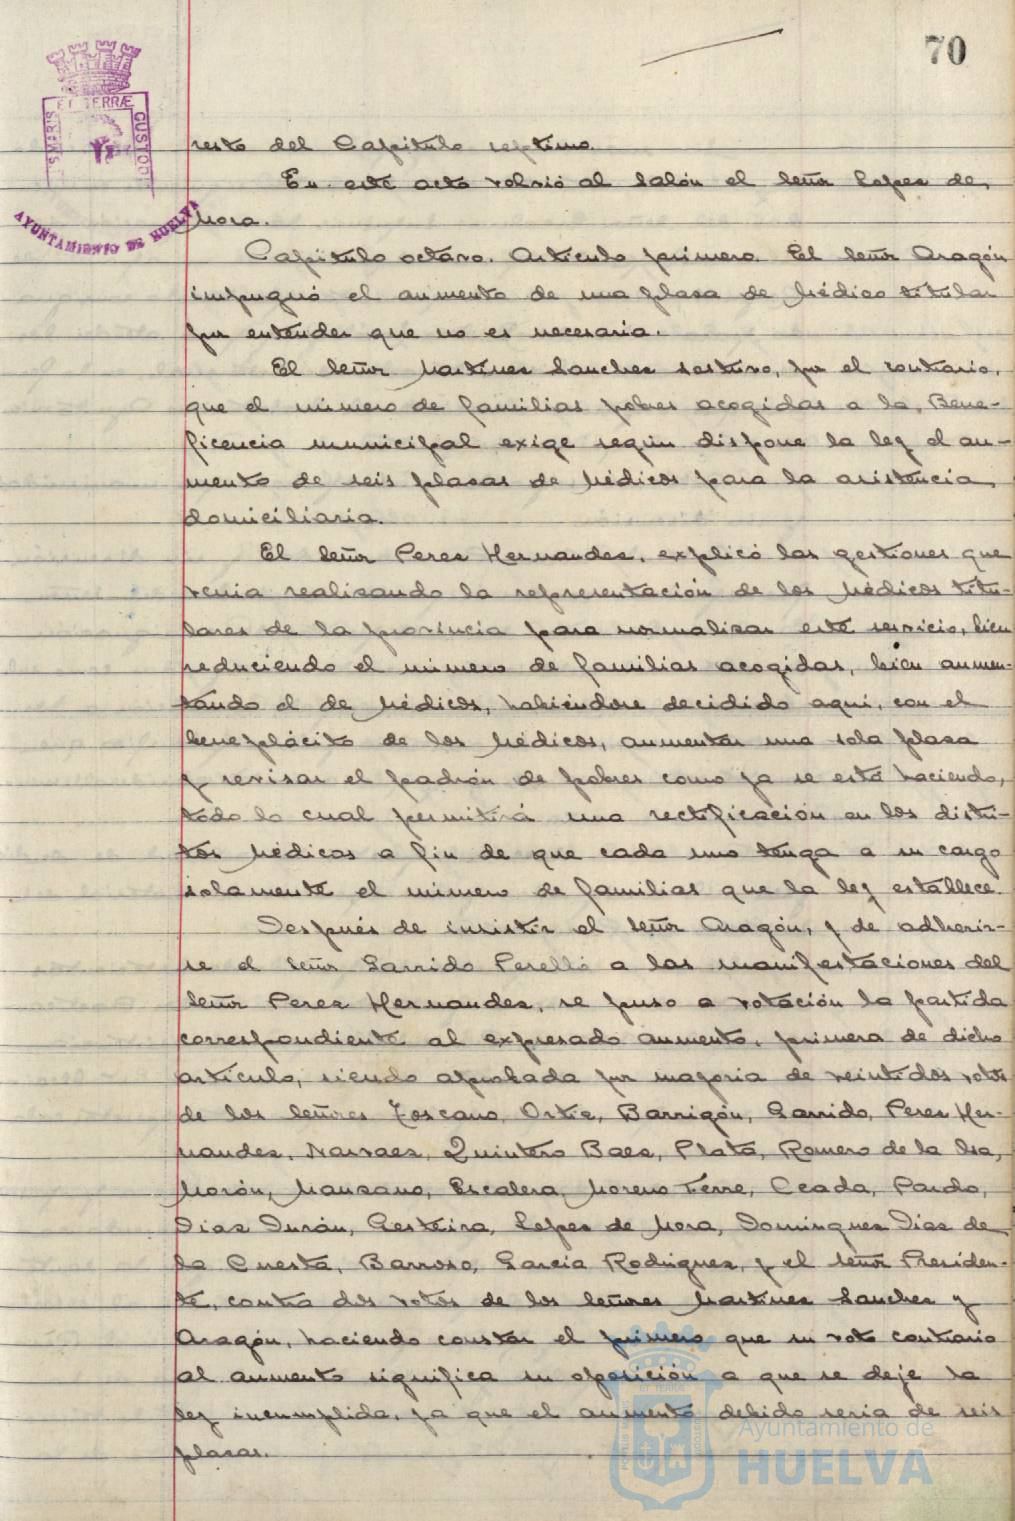 70
S MARIS
ET TERRÆ
CUSTOD
AYUNTAMIENTO DE HUELVA
resto del Capítulo septimo.
En este acto volvió al Salón el Señor Lopez de
Mora.
Capítulo octavo. Artículo primero. El Señor Aragón
impugnó el aumento de una plaza de Médico titular
por entender que no es necesaria.
El Señor Martinez Sanchez sostuvo, por el contrario,
que el número de familias pobres acogidas a la Bene-
ficencia municipal exige según dispone la ley el au-
mento de seis plazas de Médicos para la asistencia
domiciliaria.
El Señor Perez Hernandez, explicó las gestiones que
venia realizando la representación de los Médicos titu-
lares de la provincia para normalizar este servicio, bien
reduciendo el número de familias acogidas, bien aumen-
tando el de Médicos, habiéndose decidido aquí, con el
beneplácito de los Médicos, aumentar una sola plaza
y revisar el padrón de pobres como ya se está haciendo,
todo lo cual permitirá una rectificación en los distri-
tos Médicos a fin de que cada uno tenga a su cargo
solamente el número de familias que la ley establece.
Después de insistir el Señor Aragón, y de adherir-
se el Señor Garrido Perelló a las manifestaciones del
Señor Perez Hernandez, se puso a votación la partida
correspondiente al expresado aumento, primera de dicho
artículo, siendo aprobada por mayoria de veintidos votos
de los Señores Toscano, Ortiz, Barrigón, Garrido, Perez Her-
nandez, Narvaez, Quintero Baez, Plata, Romero de la Isa,
Morón, Manzano, Escalera, Moreno Ferre, Ceada, Pardo,
Dias Durán, Gesteira, Lopez de Mora, Dominguez Dias de
la Cuesta, Barroso, Garcia Rodriguez, y el Señor Presiden-
te, contra dos votos de los Señores Martinez Sanchez y
Aragón, haciendo constar el primero que su voto contrario
al aumento significa su oposición a que se deje la
ley incumplida, ya que el aumento debido seria de seis
plazas.
Ayuntamiento de
HUELVA